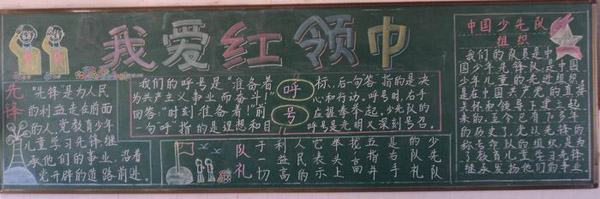 我爱红领巾
先锋
"先锋"是为人民
的利益走在前面
的人，党教育少年
儿童学习先锋继
承他们的事业，沿着
党开辟的道路前进。
我们的呼号是"准备着
为共产主义事业而奋斗"
回答："时刻准备着！"前
一句呼指的是理想和目
呼号
标，后一句答指的是决
心和行动。呼号时，右手
应握拳举起，少先队的
呼号是光明又深刻号召。
队礼
少先队礼
是右手
五指并
举头上
它表示
人民的
利益高
于一
中国少先队
组织
我们的队员是中
国少年先锋队是中国
少年儿童的先进组织，
是在中国共产党的直接
关怀和领导下建立起
来的，至今已有
的历史了。党以先锋的
称号命队的组织，是为
了教育儿童学习先锋
继承发扬他们的事业